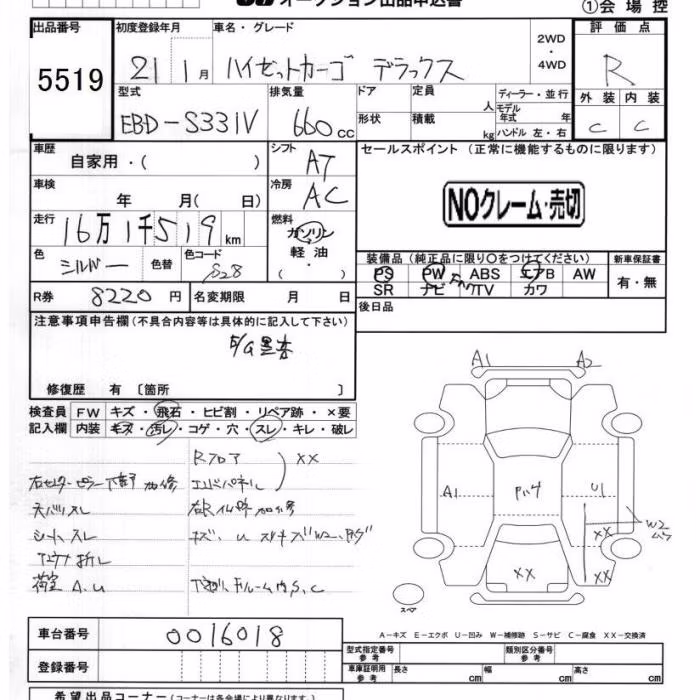 オークション出品申込書
①会場控
出品番号 初度登録年月 車名・グレード 2WD・4WD 評価点
5519 21 1月 ハイゼットカーゴ デラックス R
型式 排気量 ドア 定員 人 ディーラー・並行 外装 内装
EBD-S331V 660cc 形状 積載 kg モデル年式 年式 ハンドル 左・右 C C
車歴 自家用・( ) シフト AT セールスポイント (正常に機能するものに限ります)
車検 年 月( 日) 冷房 AC NOクレーム・売切
走行 16万1千519km 燃料 ガソリン・軽油・( )
色 シルバー 色替 色コード S28
装備品 (純正品に限り○をつけてください) 新車保証書
PS PW ABS エアB AW 有・無
SR ナビ TV カワ
R券 8220円 名変期限 月 日 後日品
注意事項申告欄 (不具合内容等は具体的に記入して下さい)
E/G異音
修復歴 有 〔箇所 〕
検査員 FW キズ・飛石・ヒビ割・リペア跡・×要
記入欄 内装 キズ・汚レ・コゲ・穴・スレ・キレ・破レ
Rフロア
エンドパネル XX
右センターピラー下部 加修
天バリスレ
シートスレ
荷室 A.U
A1 A2
A1 U1
W2
XX XX XX
スペア
A-キズ E-エクボ U-凹み W-補修跡 S-サビ C-腐食 XX-交換済
車台番号 0016018
登録番号
型式指定番号 参考 類別区分番号 参考
車庫証明用 参考 長さ cm 幅 cm 高さ cm
希望出品コーナー (コーナーは各会場により異なります)